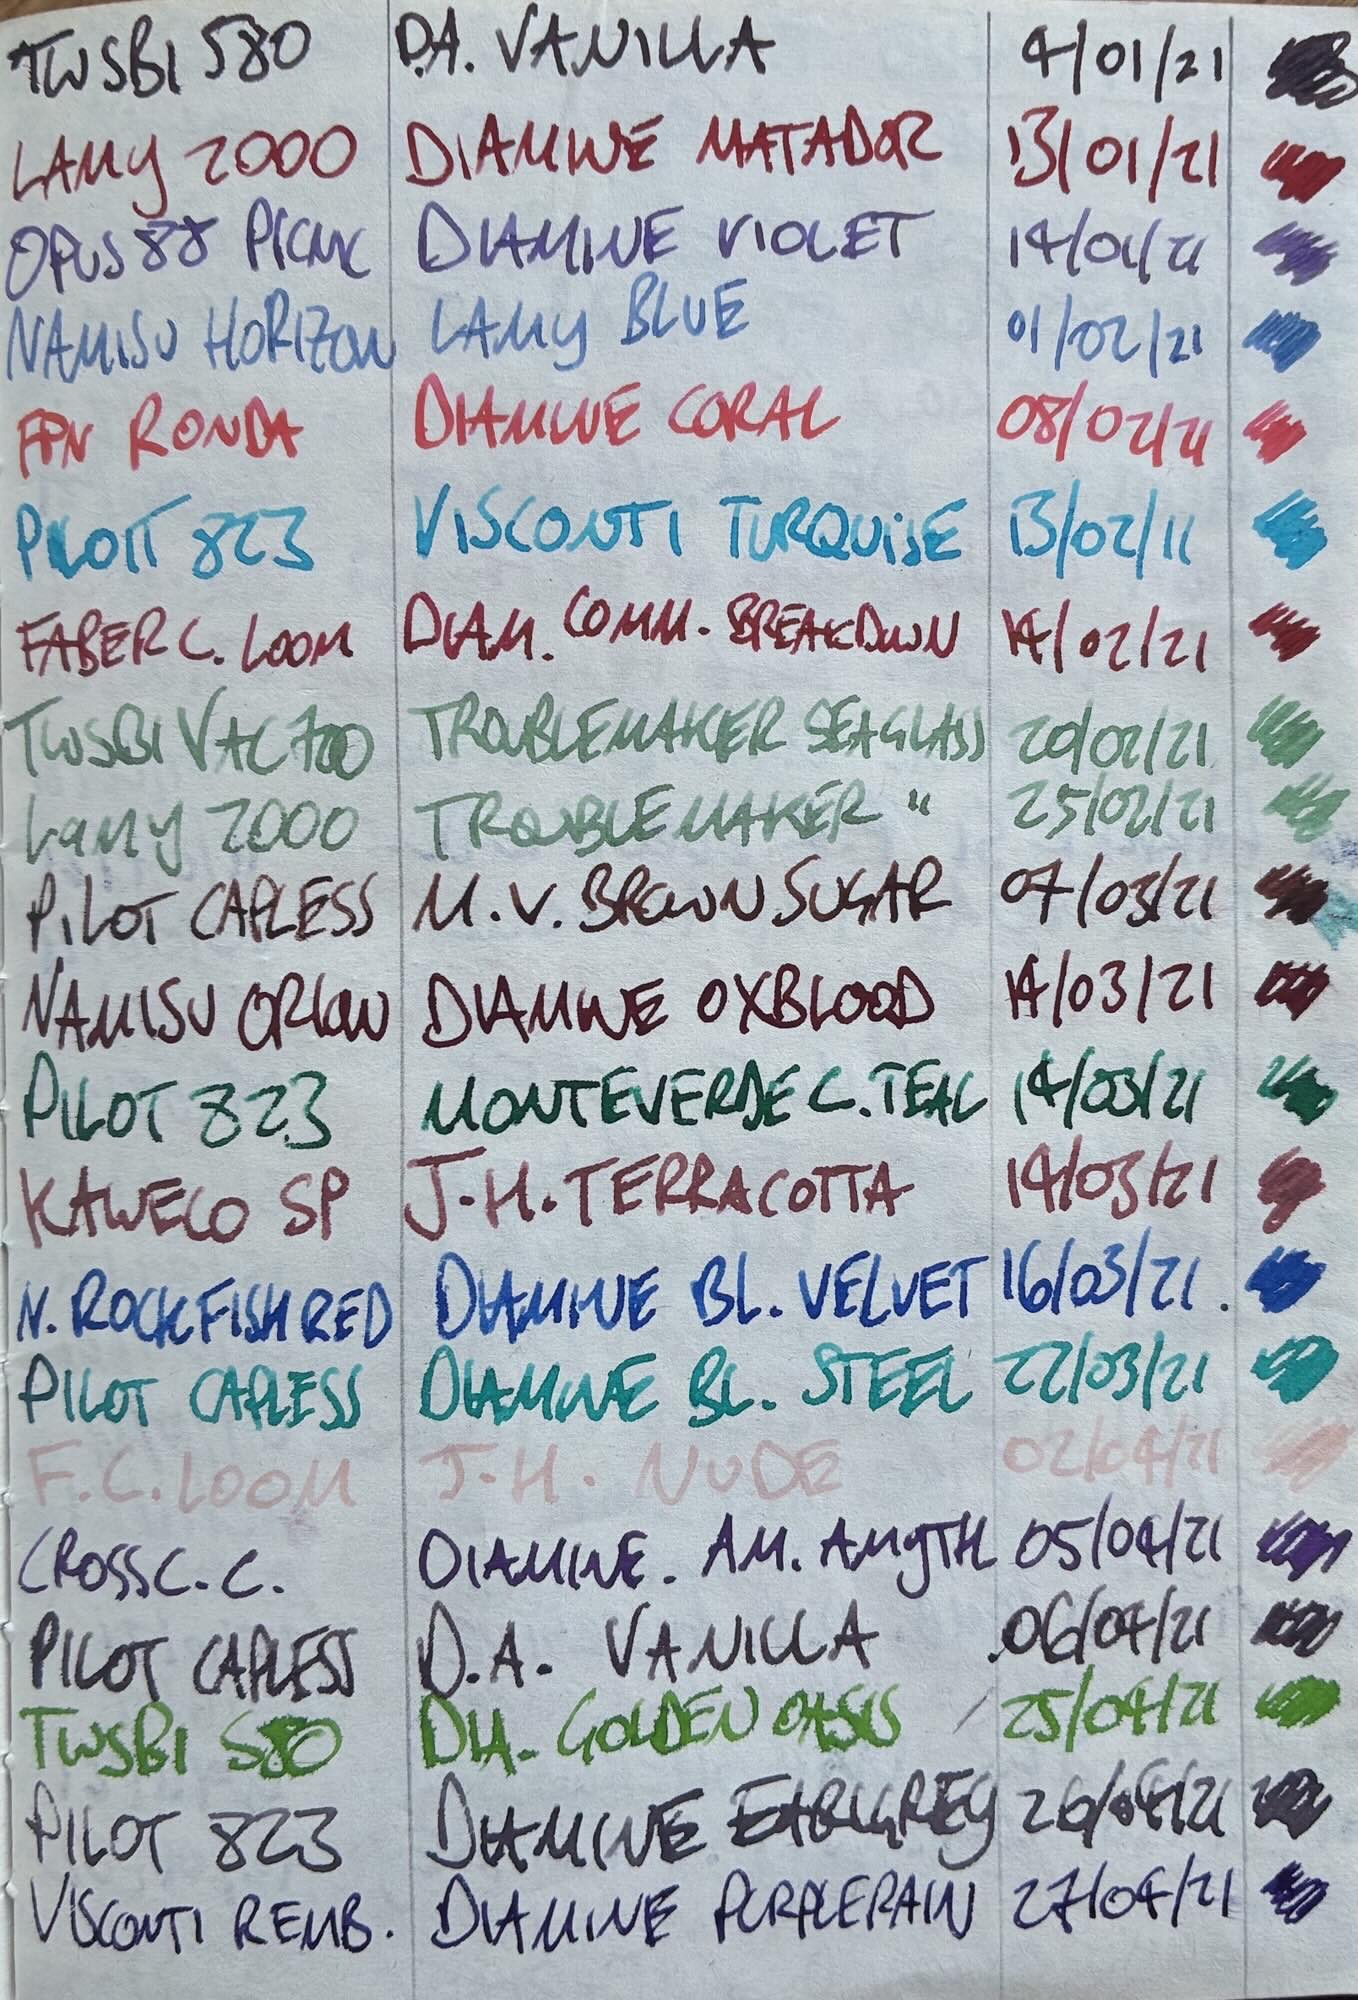 TWSBI 580 D.A. VANILLA 4/01/21
LAMY 2000 DIAMINE MATADOR 13/01/21
OPUS 88 PICNIC DIAMINE VIOLET 14/01/21
NAMISU HORIZON LAMY BLUE 01/02/21
FPN RONDA DIAMINE CORAL 08/02/21
PILOT 823 VISCONTI TURQUISE 13/02/11
FABER C. LOOM DIAM. COMM. BREAKDOWN 14/02/21
TWSBI VAC700 TROUBLEMAKER SEAGLASS 20/02/21
LAMY 2000 TROUBLEMAKER " 25/02/21
PILOT CAPLESS M.V. BROWN SUGAR 07/03/21
NAMISU ORION DIAMINE OXBLOOD 14/03/21
PILOT 823 MONTEVERDE C. TEAL 14/03/21
KAWECO SP J.H. TERRACOTTA 14/03/21
N. ROCKFISH RED DIAMINE BL. VELVET 16/03/21.
PILOT CAPLESS DIAMINE BL. STEEL 22/03/21
F.C. LOOM J.H. NUDE 02/04/21
CROSS C.C. DIAMINE. AM. AMYTH 05/04/21
PILOT CAPLESS D.A. VANILLA 06/04/21
TWSBI 580 DIA. GOLDEN OASIS 25/04/21
PILOT 823 DIAMINE EARLGREY 26/04/21
VISCONTI REMB. DIAMINE PURPLERAIN 27/04/21